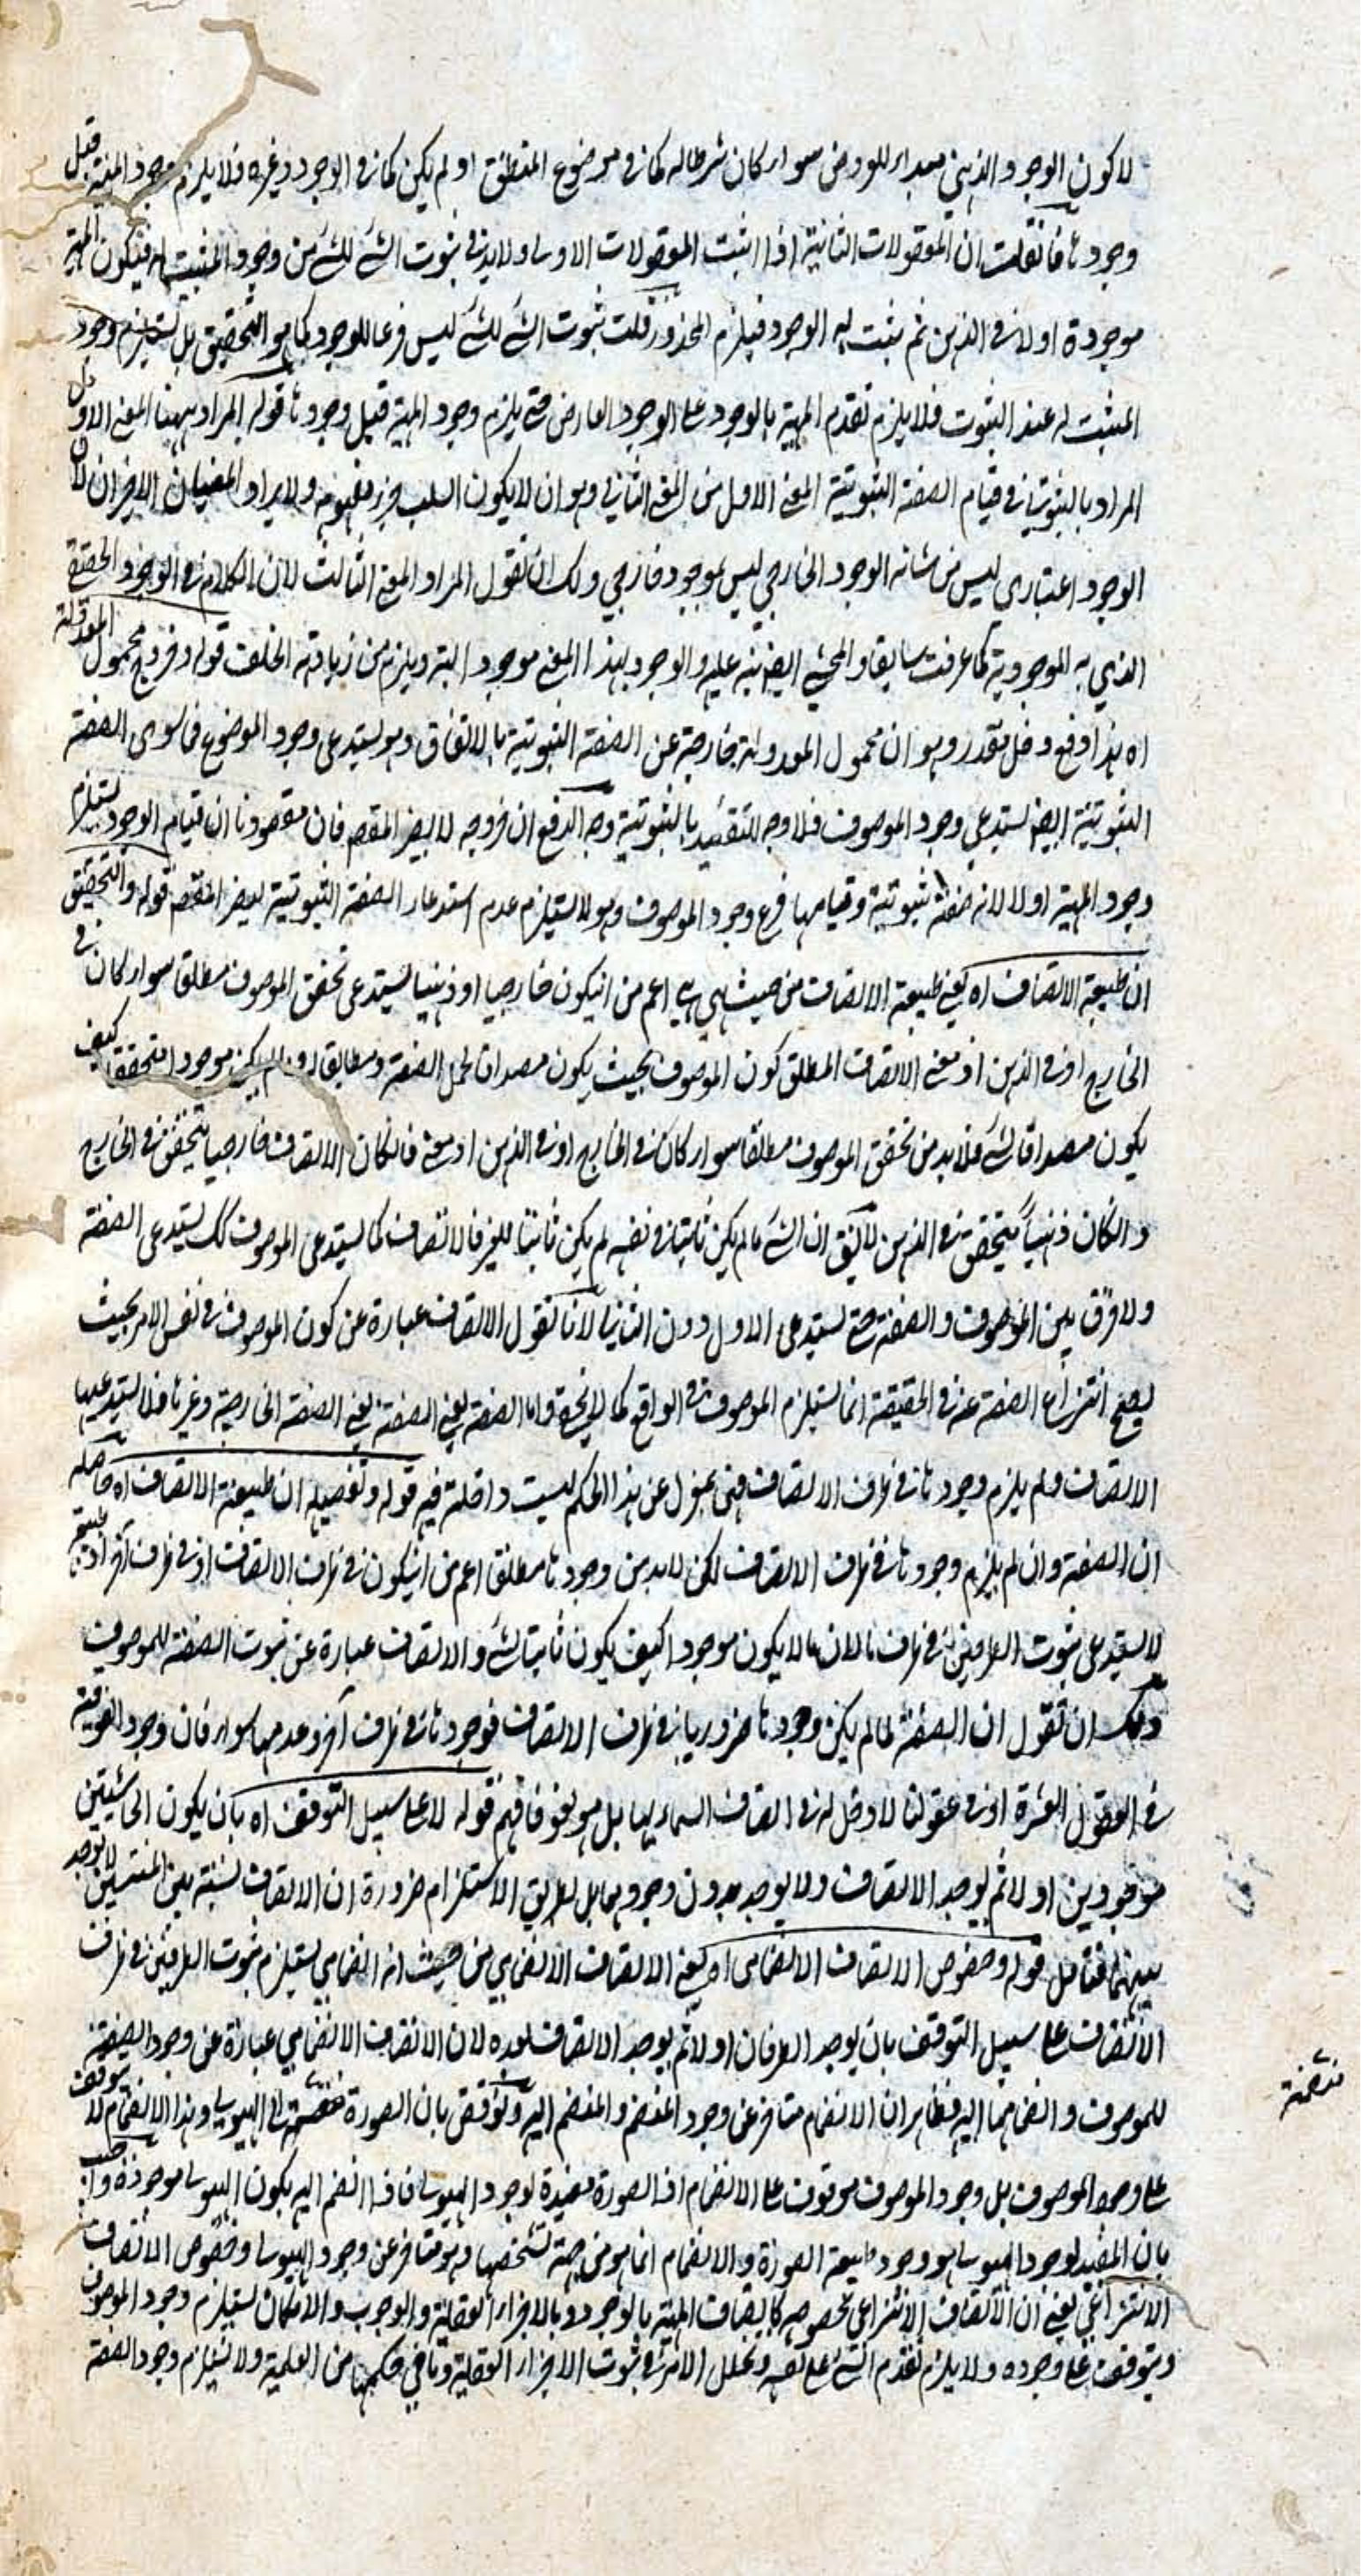 لا كون الوجود الذهني مبدأ للعروض سواء كان شرطا له كما في موضوع المنطق او لم يكن كما في الوجود وغيره فلا يلزم وجود المهية قبل
وجودها فان قلت ان المعقولات الثانية اذا اثبت المعقولات الاولى ولا بد في ثبوت الشئ للشئ من وجود المثبت له فيكون المهية
موجودة اولا في الذهن ثم يثبت له الوجود فيلزم المحذور قلت ثبوت الشئ للشئ ليس فرعا للوجود كما هو التحقيق بل يستلزم وجود
المثبت له عند الثبوت فلا يلزم تقدم المهية بالوجود على الوجود العارض حتى يلزم وجود المهية قبل وجودها قوله المراد ههنا المعنى الاول
المراد بالثبوتية في قيام الصفة الثبوتية المعنى الاول من المعنى الثاني وهو ان لا يكون السلب جزء مفهومه ولا يراد المعنيان الاخيران لان
الوجود اعتباري ليس من شانه الوجود الخارجي ليس بموجود خارجي ولك ان تقول المراد المعنى الثالث لان الكلام في الوجود الحقيقي
الذي به الموجودية كما عرفت سابقا والمحشي ايضا نبه عليه والوجود بهذا المعنى موجود البتة ويلزم من زيادته الخلف قوله وخروج محمول المعدولة
اه هذا دفع دخل مقدر وهو ان محمول المعدولة خارجة عن الصفة الثبوتية بالاتفاق وهو يستدعي وجود الموضوع فما سوى الصفة
الثبوتية ايضا يستدعي وجود الموصوف فلا وجه للتقييد بالثبوتية وجه الدفع ان خروجه لا يضر المقصم فان مقصودنا ان قيام الوجود يستلزم
وجود المهية اولا لانه صفة ثبوتية وقيامها فرع وجود الموصوف وهو لا يستلزم عدم استدعاء الصفة الثبوتية ليضر المقصم قوله والتحقيق
ان طبيعة الاتصاف اه يعني طبيعة الاتصاف من حيث هي هي اعم من ان يكون خارجيا او ذهنيا يستدعي تحقق الموصوف مطلقا سواء كان في
الخارج او في الذهن اذ معنى الاتصاف المطلق كون الموصوف بحيث يكون مصداقا لحمل الصفة ومطابقا له وما لم يكن موجودا متحققا كيف
يكون مصداقا لشئ فلا بد من تحقق الموصوف مطلقا سواء كان في الخارج او في الذهن او معنى فان كان الاتصاف خارجيا يتحقق في الخارج
وان كان ذهنيا يتحقق في الذهن لا يق ان الشئ ما لم يكن ثابتا في نفسه لم يكن ثابتا للغير فالاتصاف كما يستدعي الموصوف كك يستدعي الصفة
ولا فرق بين الموصوف والصفة حتى يستدعي الاول دون الثاني لانا نقول الاتصاف عبارة عن كون الموصوف في نفس الامر بحيث
يصح انتزاع الصفة عنه في الحقيقة انما يستلزم الموصوف في الواقع كما لا يخفى واما الصفة يعني الصفة يعني الصفة الخارجية وغيرها فلا يستدعيها
الاتصاف ولم يلزم وجودها في ظرف الاتصاف فهي بمعزل عن هذا الحكم ليست داخلة فيه قوله وتفصيله ان طبيعة الاتصاف اه حاصله
ان الصفة وان لم يلزم وجودها في ظرف الاتصاف لكن لا بد من وجودها مطلقا اعم من ان يكون في ظرف الاتصاف او في ظرف آخر اذ طبيعته
لا يستدعي ثبوت الطرفين في ظرف ما لان ما لا يكون موجودا كيف يكون ثابتا لشئ والاتصاف عبارة عن ثبوت الصفة للموصوف
ولك ان تقول ان الصفة لما لم يكن وجودها ضروريا في ظرف الاتصاف فوجودها في ظرف آخر وعدمها سواء فان وجود الفوقية
في العقول العشرة او في عقولنا لا دخل له في اتصاف السماء بها بل هو لغو فافهم قوله لا على سبيل التوقف اه بان يكون الحاشيتين
موجودين اولا ثم يوجد الاتصاف ولا يوجد بدون وجودهما بل بطريق الاستلزام ضرورة ان الاتصاف نسبة بين المنتسبين لا يوجد
بينهما فتامل قوله وخصوص الاتصاف الانضمامي اه يعني الاتصاف الانضمامي من حيث انه انضمامي يستلزم ثبوت الطرفين في ظرف
الاتصاف على سبيل التوقف بان يوجد الطرفان اولا ثم يوجد الاتصاف بعده لان الاتصاف الانضمامي عبارة عن وجود الصفة
للموصوف وانضمامها اليه فظاهر ان الانضمام متاخر عن وجود المنضم والمنضم اليه ونوقض بان الصورة منضمة الى الهيولى وهذا الانضمام لا يتوقف
على وجود الموصوف بل وجود الموصوف موقوف على الانضمام اذ الصورة مفيدة لوجود الهيولى فاذا انضم اليه يكون الهيولى موجودة واجيب
بان المفيد لوجود الهيولى هو وجود طبيعة الصورة والانضمام انما هو من جهة تشخصها وهو متاخر عن وجود الهيولى وخصوص الاتصاف
الانتزاعي يعني ان الاتصاف الانتزاعي بخصوصه كاتصاف المهية بالوجود وبالاجزاء العقلية والوجوب والامكان يستلزم وجود الموصوف
ويتوقف على وجوده ولا يلزم تقدم الشئ على نفسه وتخلل الامر في ثبوت الاجزاء العقلية وما في حكمها من العلمية ولا يستلزم وجود الصفة
منضمة